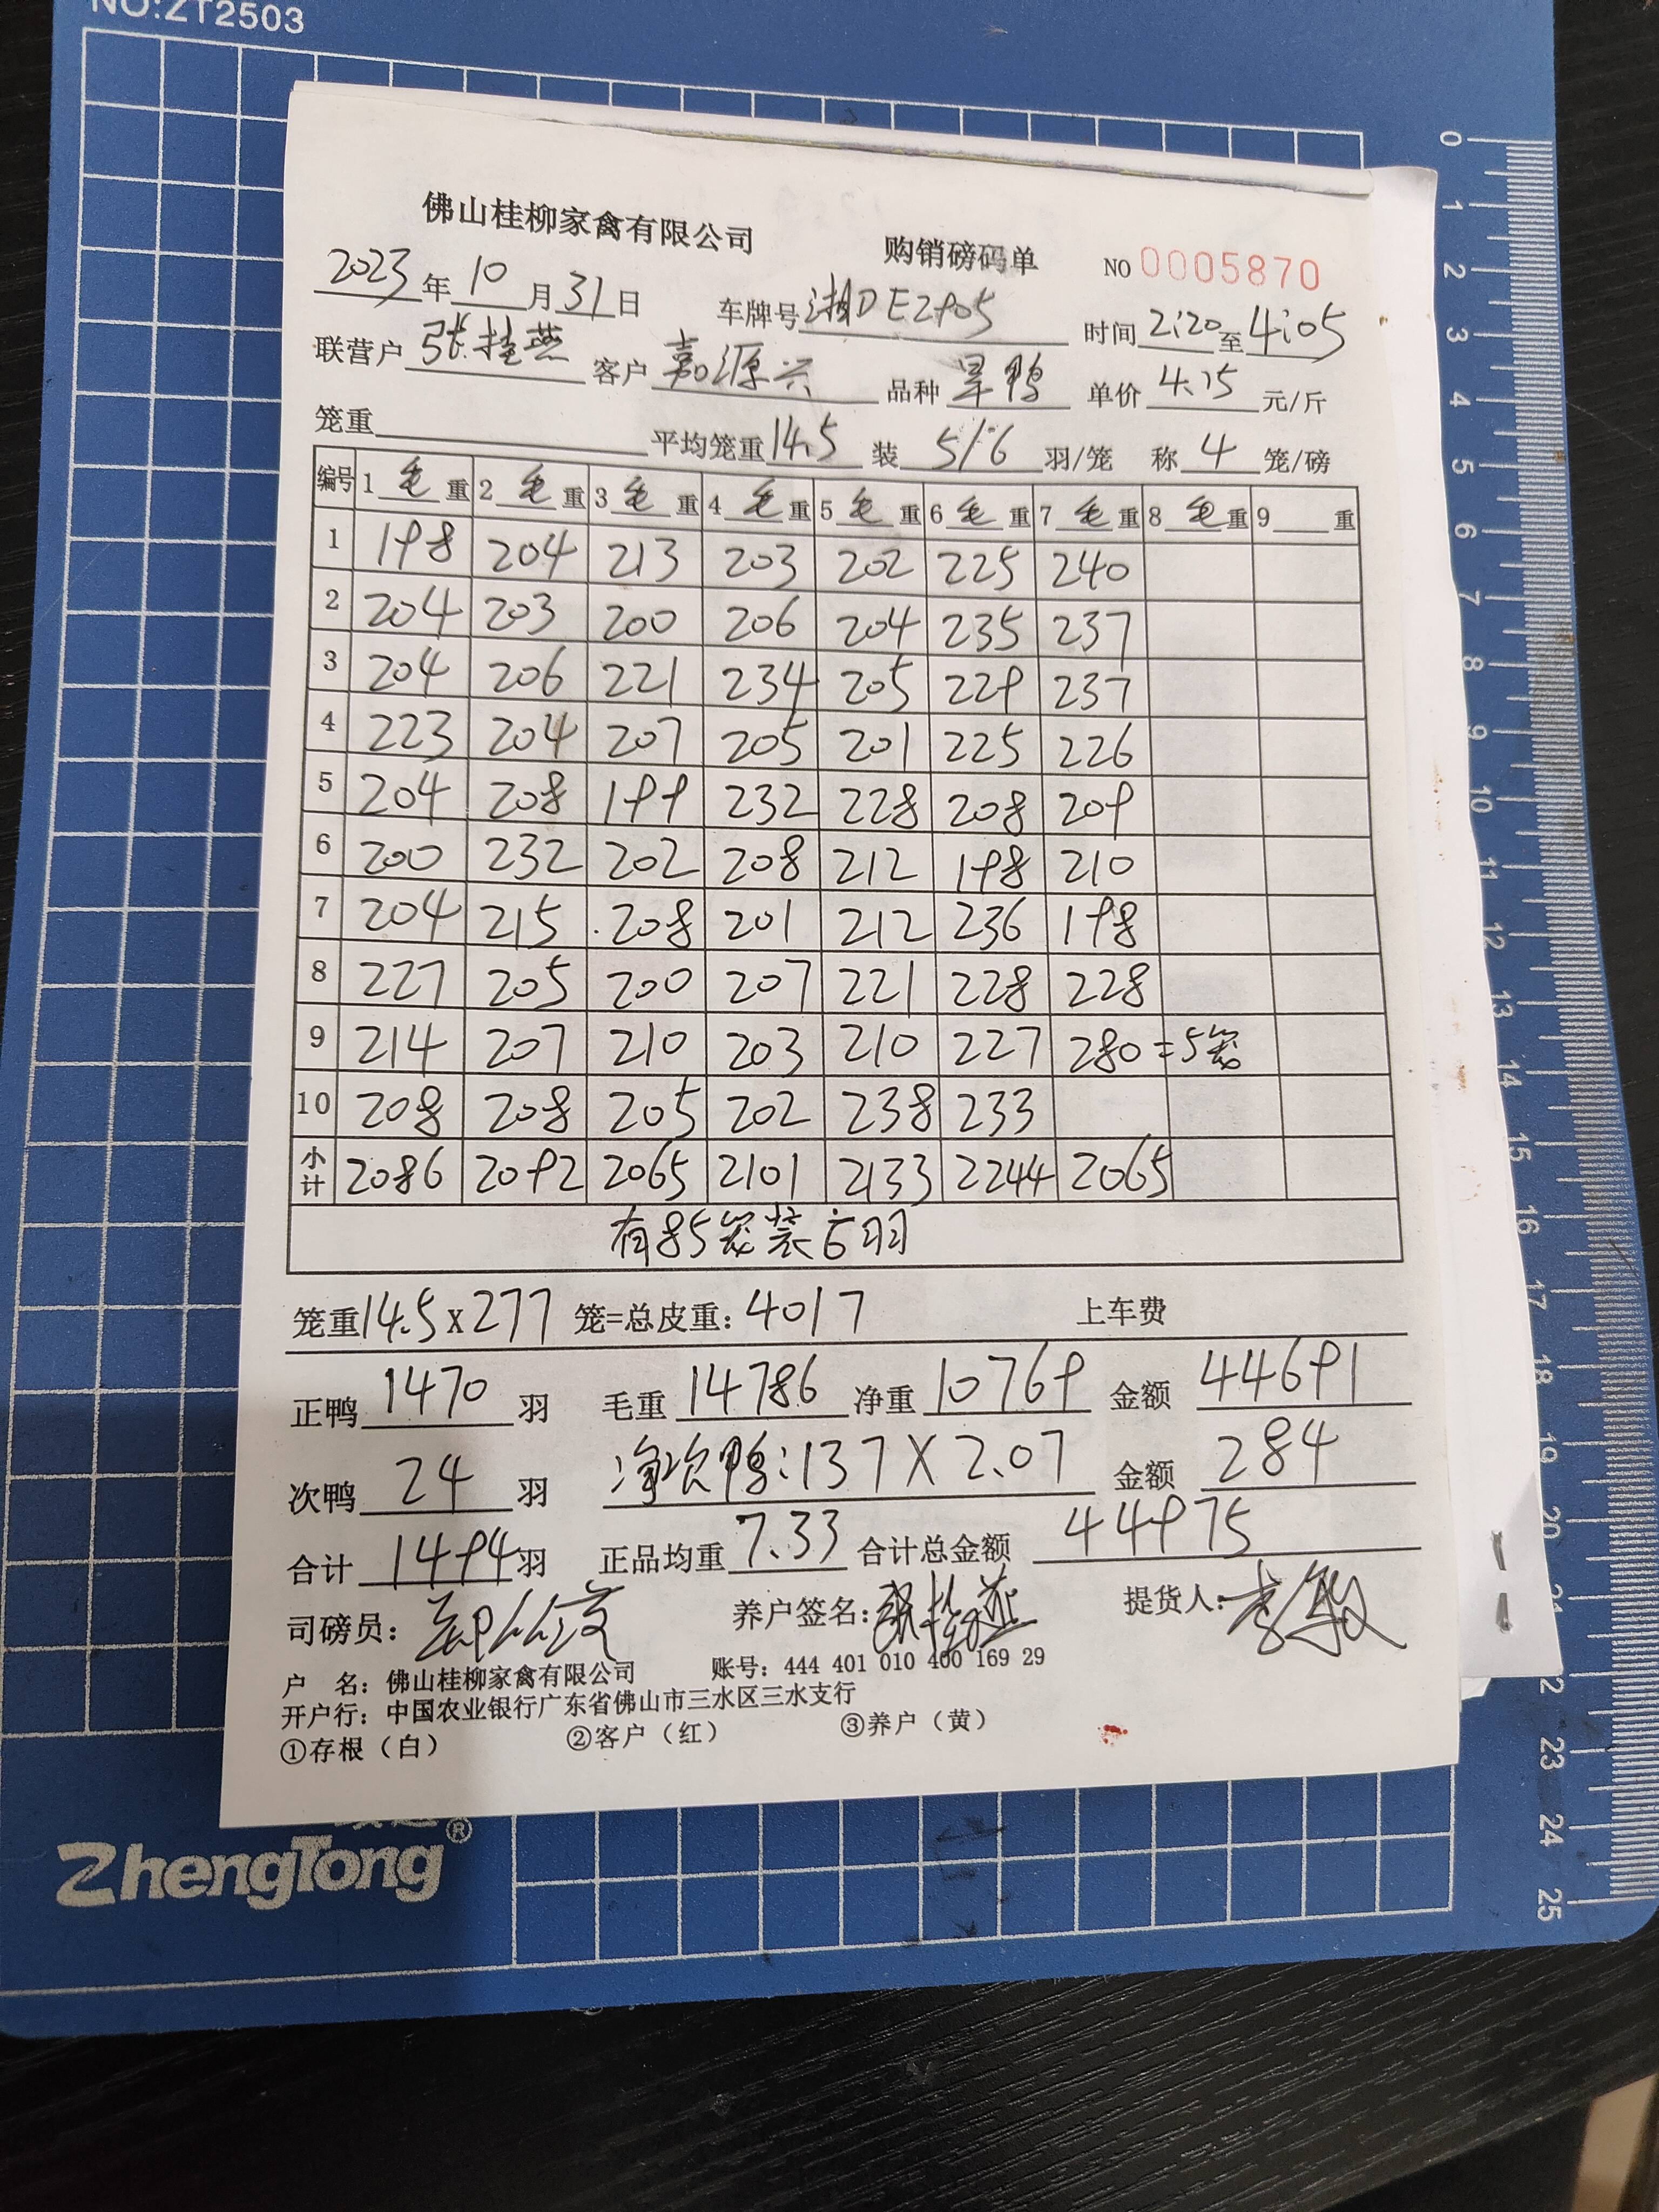 NO:ZT2503
佛山桂柳家禽有限公司 购销磅码单 NO 0005870
2023年10月31日 车牌号湘DE2905 时间2:20至4:05
联营户张桂燕 客户嘉源兴 品种旱鸭 单价4.15元/斤
笼重 平均笼重14.5 装5/6羽/笼 称4笼/磅
编号 1毛重 2毛重 3毛重 4毛重 5毛重 6毛重 7毛重 8毛重 9重
1 198 204 213 203 202 225 240
2 204 203 200 206 204 235 237
3 204 206 221 234 205 229 237
4 223 204 207 205 201 225 226
5 204 208 199 232 228 208 209
6 200 232 202 208 212 198 210
7 204 215 208 201 212 236 198
8 227 205 200 207 221 228 228
9 214 207 210 203 210 227 280=5笼
10 208 208 205 202 238 233
小计 2086 2092 2065 2101 2133 2244 2065
有85笼装6羽
笼重14.5x277 笼=总皮重:4017 上车费
正鸭1470羽 毛重14786 净重10769 金额44691
次鸭24羽 净次鸭:137X2.07 金额284
合计1494羽 正品均重7.33 合计总金额44975
司磅员: 养户签名:张桂燕 提货人:李敏
户 名:佛山桂柳家禽有限公司 账号:444 401 010 400 169 29
开户行:中国农业银行广东省佛山市三水区三水支行
①存根(白) ②客户(红) ③养户(黄)
ZhengTong®
0
1
2
3
4
5
6
7
8
9
10
11
12
13
14
15
16
17
18
19
20
21
22
23
24
25